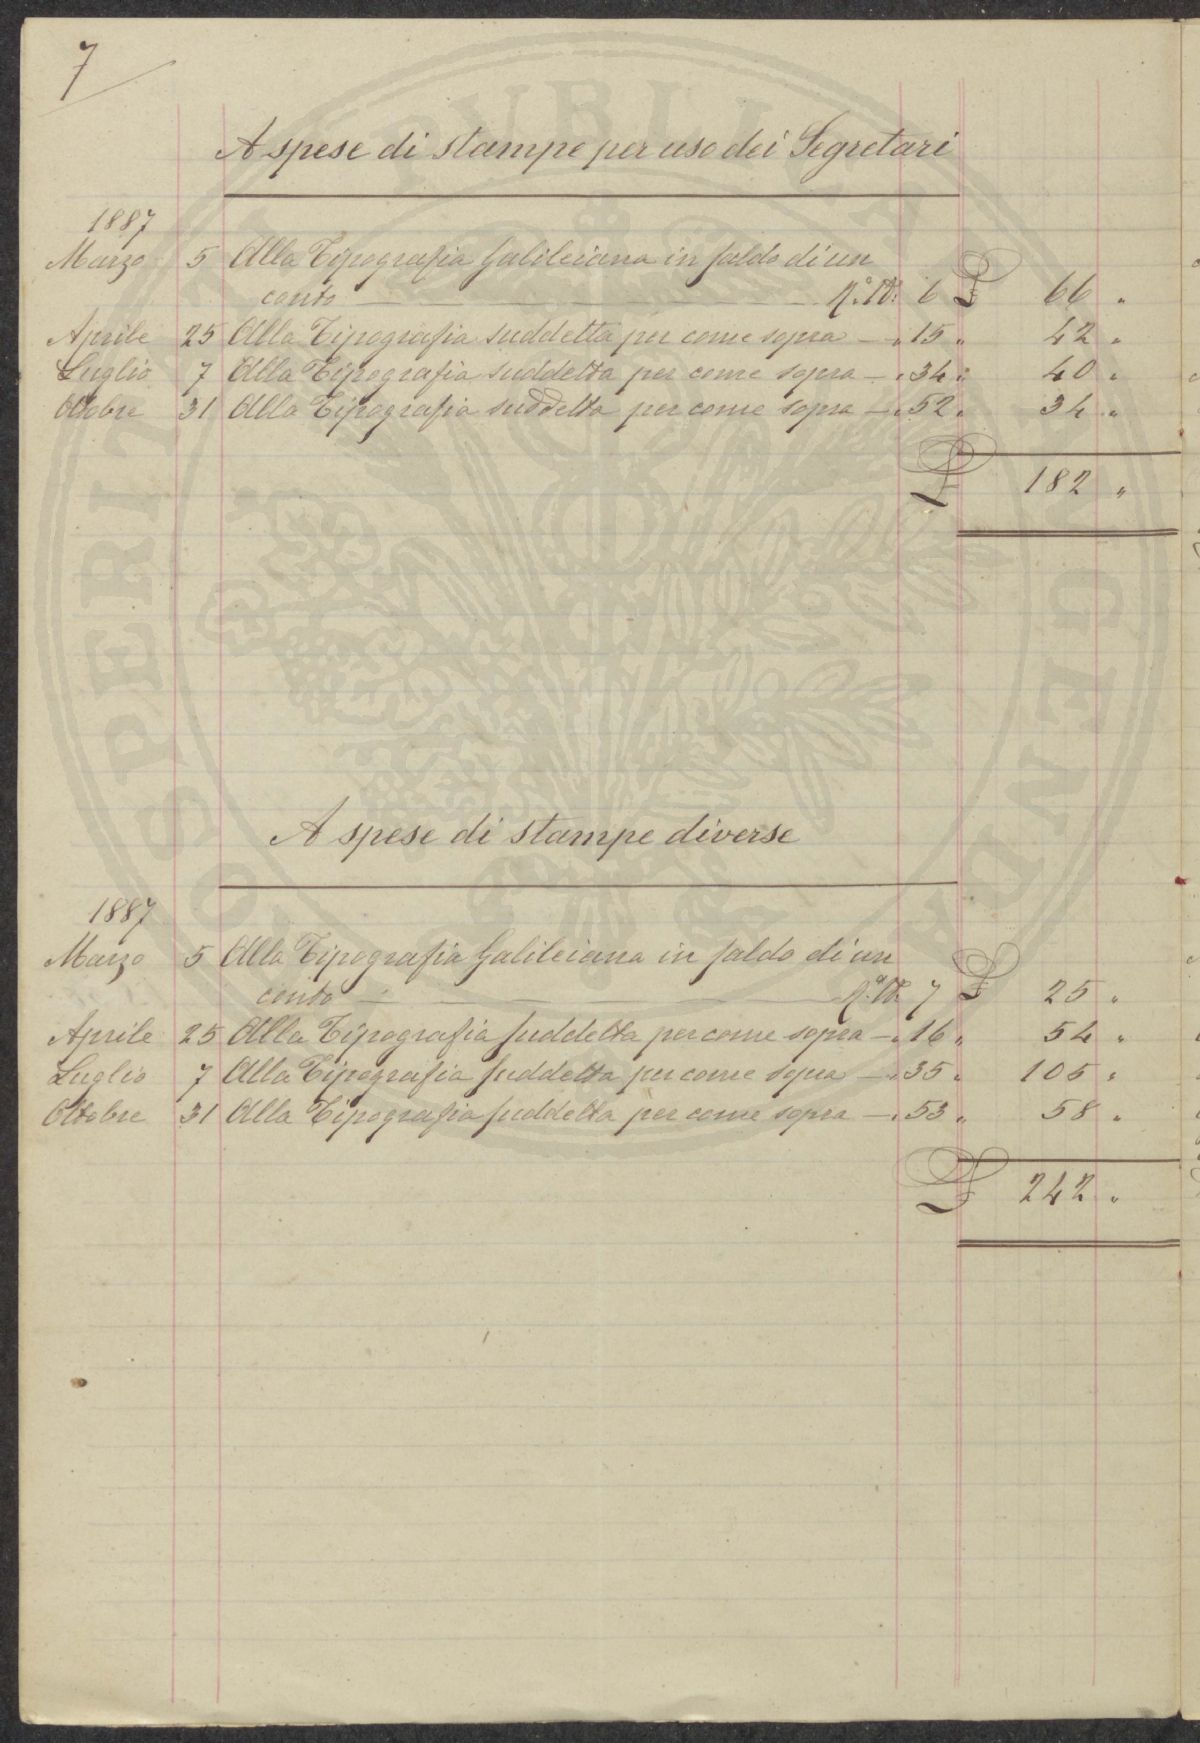 7
A spese di stampe per uso dei Segretari
1887
Marzo 5 Alla Tipografia Galileiana in saldo di un
conto N.° 6 £ 66 "
Aprile 25 Alla Tipografia suddetta per come sopra — " 15 " 42 "
Luglio 7 Alla Tipografia suddetta per come sopra — " 34 " 40 "
Ottobre 31 Alla Tipografia suddetta per come sopra — " 52 " 34 "
£ 182 "
A spese di stampe diverse
1887
Marzo 5 Alla Tipografia Galileiana in saldo di un
conto — N.° 7 £ 25 "
Aprile 25 Alla Tipografia suddetta per come sopra — " 16 " 54 "
Luglio 7 Alla Tipografia suddetta per come sopra — " 35 " 105 "
Ottobre 31 Alla Tipografia suddetta per come sopra — " 53 " 58 "
£ 242 "